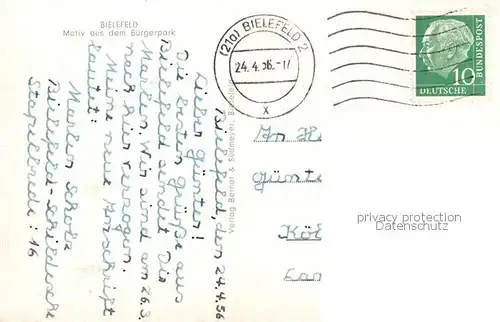 BIELEFELD
Motiv aus dem Bürgerpark
(21a) BIELEFELD 2
24.4.56.-17
x
10
DEUTSCHE
BUNDESPOST
Bielefeld, den 24.4.56
Lieber Günter!
Die besten Grüße aus
Bielefeld sendet Dir
Marlen. Wir sind am 26.3.
nach hier verzogen.
Meine neue Anschrift
lautet:
Marlen Scholz
Bielefeld-Schildesche
Stapelbrede: 16
Verlag Bernat & Südmeyer, Bielefeld
An H
Günt
Köl
privacy protection
Datenschutz